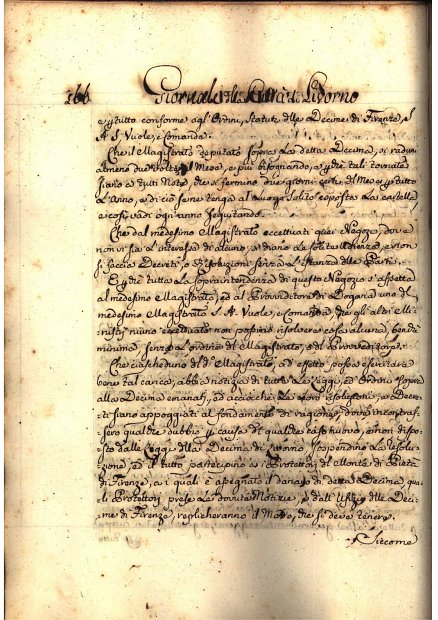 166 Giornale di Livorno
e p. tutto conforme agl' Ordini, Statuti, delle Decime di Firenze, S.
A. S. Vuole, e Comanda.
Che il Magistrato deputato sopra La detta Decima, si raduni
almeno due volte il Mese, e più bisognando, e p. che tali tornate
siano a tutti Note, che si fermino due giorni certi del Mese p. tutto
L'Anno, e di ciò se ne tenga al Luogo Solito esposta La cartella
e così vadi ogni anno Seguitando.
Che dal medesimo Magistrato eccettuati quei Negozi, dove
non vi sia L'interesse di alcuno, si diano Le Solite Udienze, e non
si faccia Decreti, o Resoluzioni senza L'Istanza delle Parti.
E p. che tutta La Sopraintendenza di questo Negozio s'aspetta
al medesimo Magistrato, ed al Provveditore di Dogana uno del
medesimo Magistrato S. A. Vuole, e Comanda, che gli altri Mi-
nistri niuno eccettuato non possino risolvere cosa alcuna, benche
minima, senza L'ordine del Magistrato, o del Provveditore.
Che ciascheduno del d.º Magistrato, ad effetto possa esercitare
bene tal carico, abbia notizia di tutte Le Leggi, ed Ordini sopra
alla Decima emanati, ed acciocchè Le loro resoluzioni, e Decre-
ti siano appoggiati al fondamento di ragione, dove incontras-
sero qualche dubbio p. causa di qualche caso nuovo, e non dispo-
sto dalle Leggi della Decima di Livorno, sospendino La resolu-
zione, ed il tutto partecipino a i Protettori del Monte di Pietà
di Firenze, a i quali è assegnato il danaro di detta Decima, qua-
li Protettori, prese Le dovute Notizie, e dall' Ufizio delle Deci-
me di Firenze, replicheranno il Modo, che si deve tenere.
Siccome